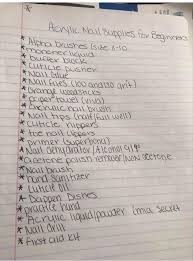 *
Acrylic Nail Supplies for Beginners
* Alpha brushes (size 8-10
* monomer liquid
* buffer block
* cuticle pusher
* Nail glue
* Nail files (100 and 180 grit)
* orange woodsticks
* paper towel (viva)
* Acrylic nail brush
* Nail tips (half/full well)
* cuticle nippers
* toe nail clippers
* primer (superbond)
* Nail dehydrator / Alcohol 91%
* acetone polish remover / non acetone
* Nail brush
* hand sanitizer
* Cuticle oil
* Dappen Dishes
* practice hand
* Acrylic liquid/powder (mia secret
* Nail Drill
* First aid kit